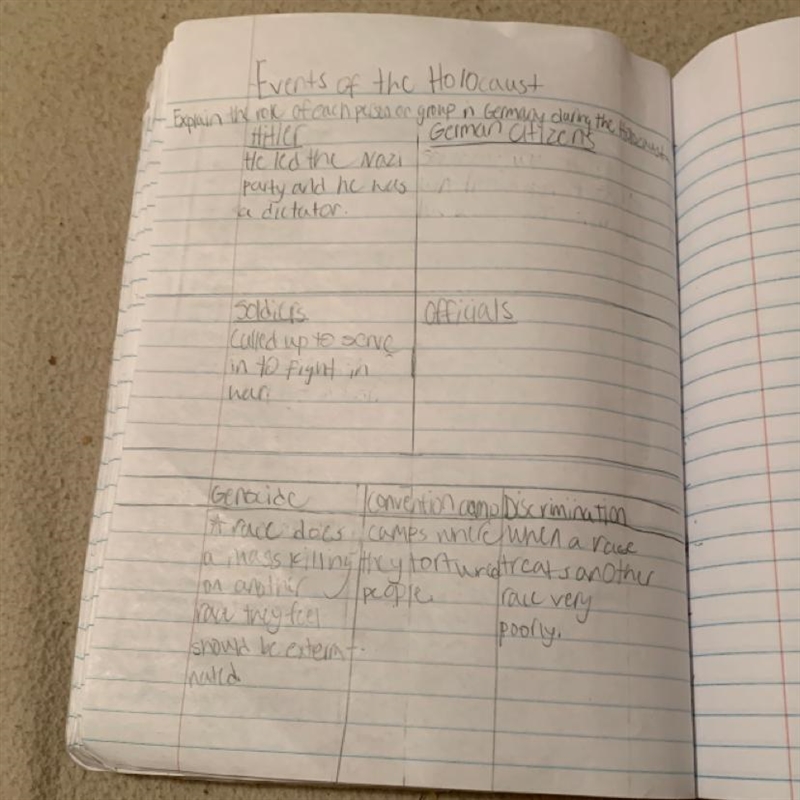 Events of the Holocaust
Explain the role of each person or group in Germany during the Holocaust
Hitler
He led the Nazi
party and he was
a dictator.
German Citizens
Soldiers
Called up to serve
in to fight in
war.
Officials
Genocide
A race does
a mass killing
on another
race they feel
should be extermi-
nated
Convention camp
camps where
they tortured
people.
Discrimination
when a race
treats another
race very
poorly.